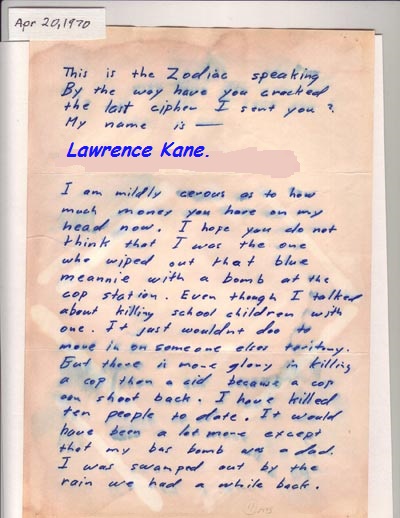 Apr 20, 1970
This is the Zodiac speaking
By the way have you cracked
the last cipher I sent you ?
My name is —
Lawrence Kane.
I am mildly cerous as to how
much money you have on my
head now. I hope you do not
think that I was the one
who wiped out that blue
meannie with a bomb at the
cop station. Even though I talked
about killing school children with
one. It just wouldnt doo to
move in on someone elses teritory.
But there is more glory in killing
a cop than a cid because a cop
can shoot back. I have killed
ten people to date. It would
have been a lot more except
that my bus bomb was a dud.
I was swamped out by the
rain we had a while back.